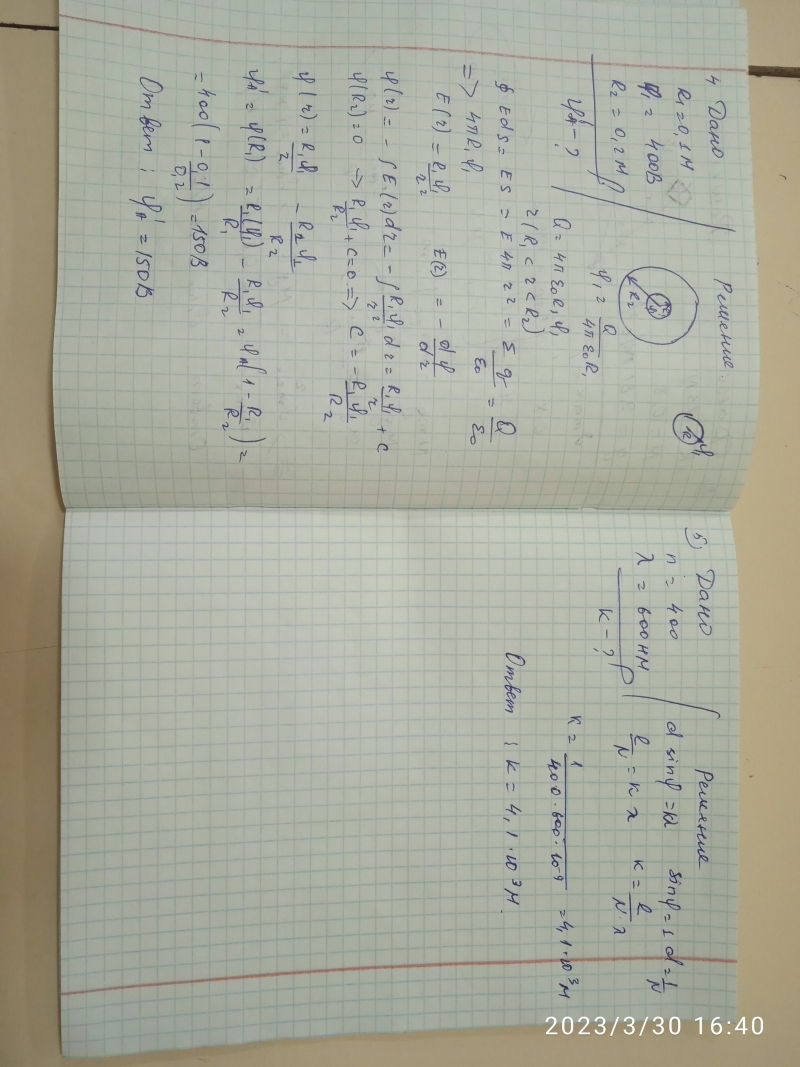 4 Дано
R₁ = 0,1 м
φ₁ = 400 В
R₂ = 0,2 м
φ'A - ?
Решение.
R₂
φ₁ = Q / 4πε₀R₁
Q = 4πε₀R₁φ₁
r (R₁ < r < R₂)
∮ E dS = ES = E 4πr² = Σq / ε₀ = Q / ε₀
=> 4πR₁φ₁
E(r) = R₁φ₁ / r² E(r) = - dφ / dr
φ(r) = - ∫ E(r) dr = - ∫ R₁φ₁ / r² dr = R₁φ₁ / r + C
φ(R₂) = 0 => R₁φ₁ / R₂ + C = 0 => C = - R₁φ₁ / R₂
φ(r) = R₁φ₁ / r - R₁φ₁ / R₂
φ'A = φ(R₁) = R₁(φ₁) / R₁ - R₁φ₁ / R₂ = φA(1 - R₁ / R₂) =
= 400(1 - 0,1 / 0,2) = 150 В
Ответ: φ'A = 150 В
5) Дано
n = 400
λ = 600 нм
k - ?
Решение
d sinφ = kλ sinφ = 1 d = 1 / N
l / N = k λ k = l / N·λ
k = 1 / 400·600·10⁻⁹ = 4,1·10³ м
Ответ: k = 4,1·10³ м.
2023/3/30 16:40